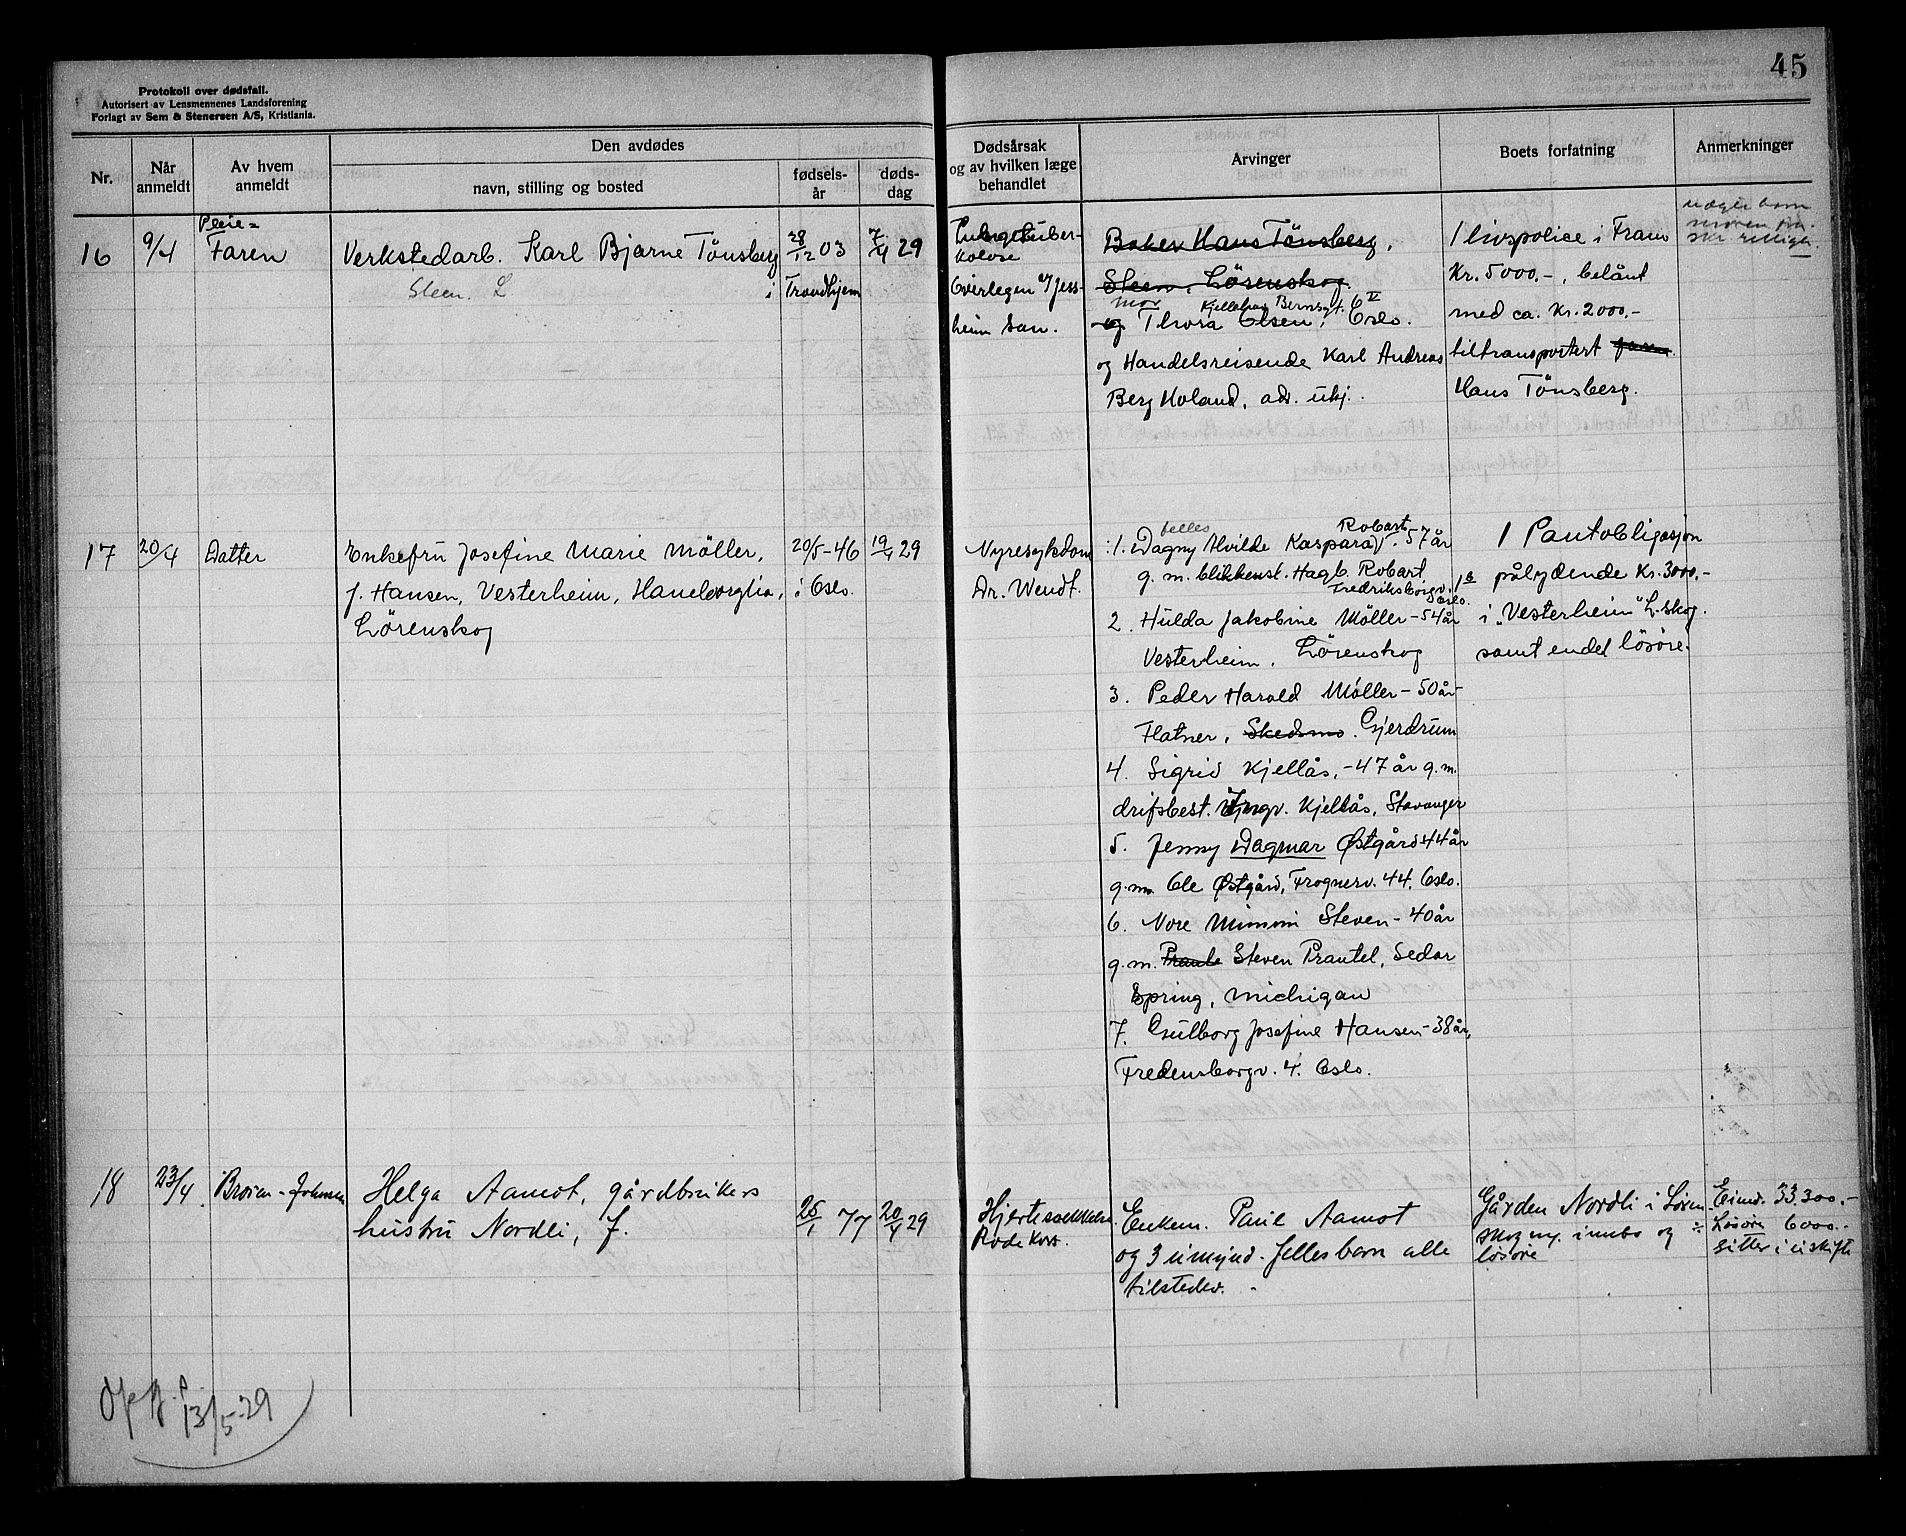 45
Protokoll over dødsfall.
Autorisert av Lensmennenes Landsforening
Forlagt av Sem & Stenersen A/S, Kristiania.
Nr.
Når anmeldt
Av hvem anmeldt
Den avdødes
navn, stilling og bosted
fødsels-år
døds-dag
Dødsårsak
og av hvilken læge
behandlet
Arvinger
Boets forfatning
Anmerkninger
16
9/4
Pleie-
Faren
Verkstedarb. Karl Bjarne Tönsberg
Steen. L
i
28/12 03
Trondhjem
7/4 29
tuber-
kolose
Overlegen v/ Jess-
heim San.
Baker Hans Tönsberg,
Steen, Lörenskog.
mor
Kjellehay Bernsgt. 6 V
og Thora Olsen, Oslo.
og Handelsreisende Karl Andreas
Berg Holand, adr. ukj.
1 livspolice i Fram
Kr. 5000.-, belånt
med ca. Kr. 2000.-
tiltransportert faren.
Hans Tönsberg.
17
20/4
Datter
Enkefru Josefine Marie Möller,
f. Hansen, Vesterheim, Haneborglia,
Lörenskog
20/5-46
i Oslo.
19/4 29
Nyresykdom
Dr. Wendt.
felles
Robart
1. Dagny Hvilde Kaspara - 57 år
g. m. blikkenst. Hagb. Robart
Fredriksborgv. 1 a
Oslo.
2. Hulda Jakobine Möller - 54 år
Vesterheim, Lörenskog
3. Peder Harald Möller - 50 år
Flatner, Skedsmo. Gjerdrum
4. Sigrid Kjellås, - 47 år g. m.
drifsbest. Yngv. Kjellås, Stavanger
5. Jenny Dagmar Østgård 44 år
g. m. Ole Østgård, Frognerv. 44, Oslo.
6. Nore Mimmi Steven - 40 år
g. m. Praute Steven Prautel, Sedar
Spring, Michigan
7. Gulborg Josefine Hansen - 38 år,
Fredensborgv. 4. Oslo.
1 Pantobligasjon
pålydende Kr. 3000,-
i "Vesterheim" L.skog.
samt endel lösöre.
18
23/4
Broren - Johansen
Helga Aamot, gårdbrukers
hustru Nordli, f.
25/1 77
20/4 29
Hjertesvekkelse
Røde Kors.
Enkem. Paul Aamot
og 3 umynd. fellesbarn alle
tilstedev.
Gården Nordli i Lören-
skog m. innbo og
lösöre
Eiend. 33.300.-
Lösöre 6000.-
sitter i uskifte
Opg. 13/5-29